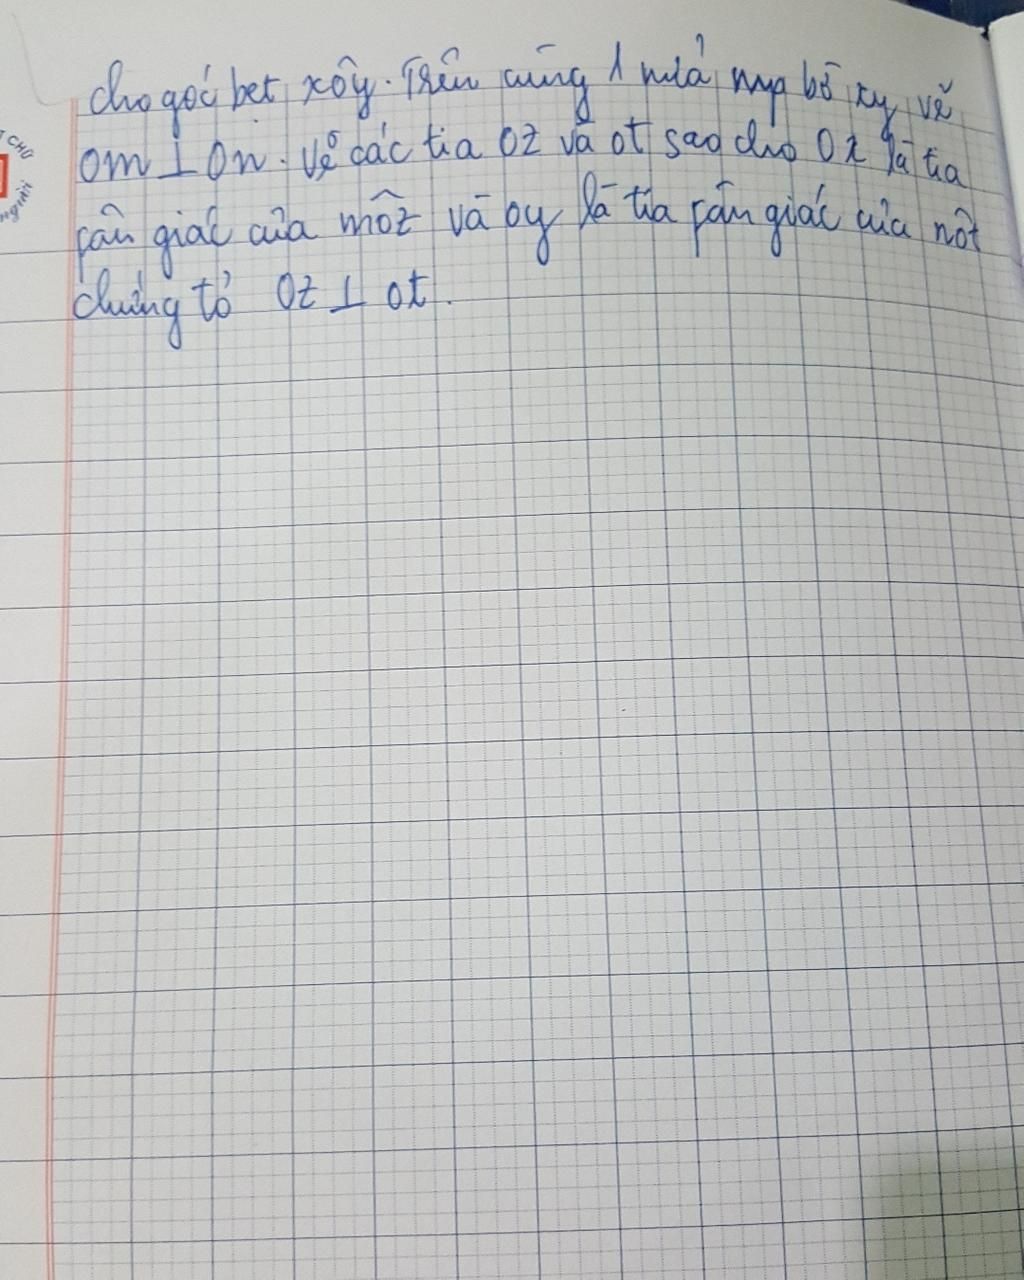 cho góc bet xôy. Trên cùng 1 nửa mp bờ xy vẽ
om ⊥ On. Vẽ các tia Oz và ot sao cho Ox là tia
fân giác của môz và oy là tia fân giác của nôt
chứng tỏ Oz ⊥ ot.
CHỮ
người